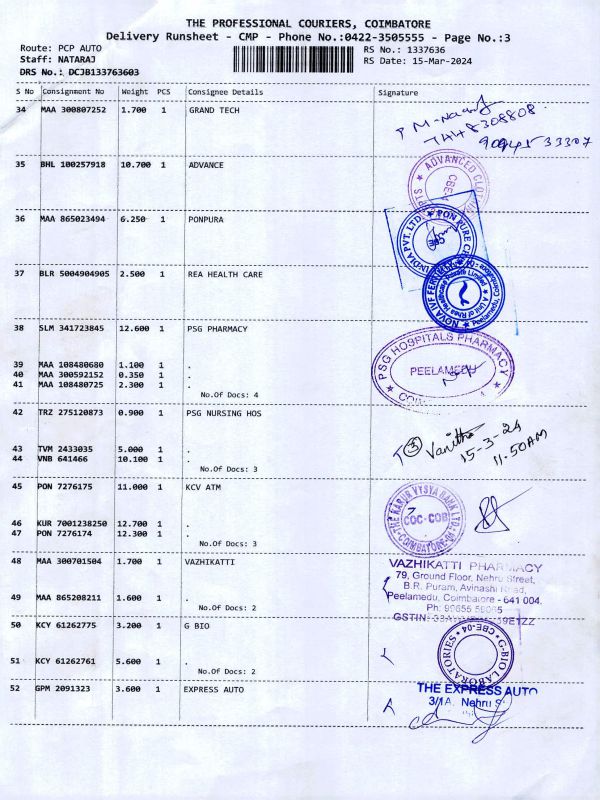 THE PROFESSIONAL COURIERS, COIMBATORE
Delivery Runsheet - CMP - Phone No.:0422-3505555 - Page No.:3
Route: PCP AUTO
RS No.: 1337636
Staff: NATARAJ
RS Date: 15-Mar-2024
DRS No.: DCJB133763603
S No Consignment No Weight PCS Consignee Details Signature
34 MAA 300807252 1.700 1 GRAND TECH
35 BHL 100257918 10.700 1 ADVANCE
ADVANCED
36 MAA 865023494 6.250 1 PONPURA
INDIA PVT. LTD. PON PURE
CBE
37 BLR 5004904905 2.500 1 REA HEALTH CARE
NOVA IVF
38 SLM 341723845 12.600 1 PSG PHARMACY
PSG HOSPITALS PHARMACY
PEELAMEDU
39 MAA 108480680 1.100 1 .
40 MAA 300592152 0.350 1 .
41 MAA 108480725 2.300 1 .
No.Of Docs: 4
42 TRZ 275120873 0.900 1 PSG NURSING HOS
Vanitha
15-3-24
11.50AM
43 TVM 2433035 5.000 1 .
44 VNB 641466 10.100 1 .
No.Of Docs: 3
45 PON 7276175 11.000 1 KCV ATM
THE KARUR VYSYA BANK LTD.
COC-COB
COIMBATORE
46 KUR 7001238250 12.700 1 .
47 PON 7276174 12.300 1 .
No.Of Docs: 3
48 MAA 300701504 1.700 1 VAZHIKATTI
VAZHIKATTI PHARMACY
79, Ground Floor, Nehru Street,
B.R. Puram, Avinashi Road
Peelamedu, Coimbatore - 641 004.
Ph:
GSTIN:
49 MAA 865208211 1.600 1 .
No.Of Docs: 2
50 KCY 61262775 3.200 1 G BIO
G-BIO LABORATORIES
CBE-04
51 KCY 61262761 5.600 1 .
No.Of Docs: 2
52 GPM 2091323 3.600 1 EXPRESS AUTO
THE EXPRESS AUTO
3/1A, Nehru